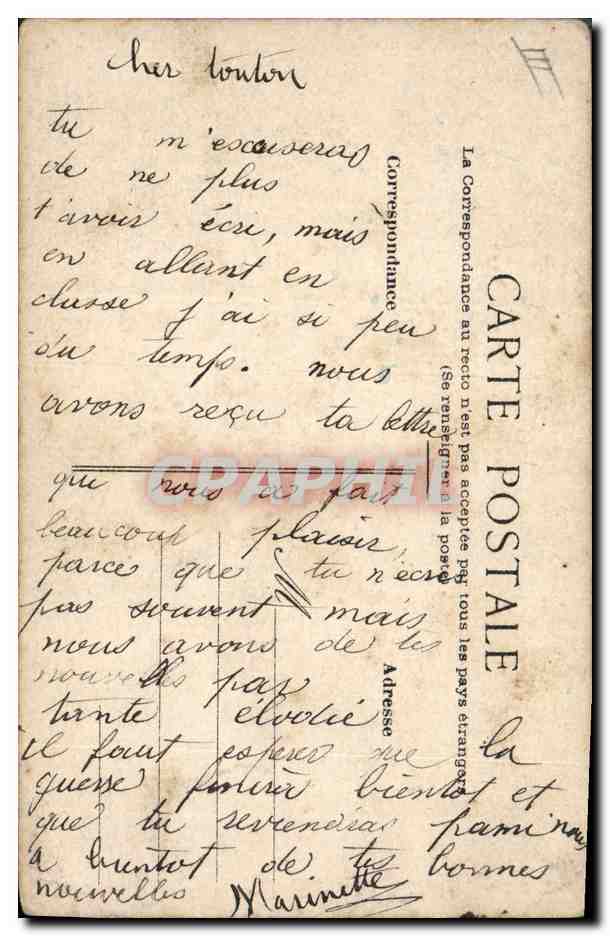 cher tonton
tu m'escuseras
de ne plus
t'avoir écri, mais
en allant en
classe j'ai si peu
du temps. nous
avons reçu ta lettre
que nous a fait
beaucoup plaisir,
parce que tu n'écris
pas souvent mais
nous avons de tes
nouvelles par
tante élodie
il faut esperer que la
guerre finira bientot et
que tu reviendras pami nous
a bientot de tes bonnes
nouvelles Marinette
CARTE POSTALE
La Correspondance au recto n'est pas acceptée par tous les pays étrangers
(Se renseigner à la poste)
Correspondance
Adresse
III
CPAPHIL